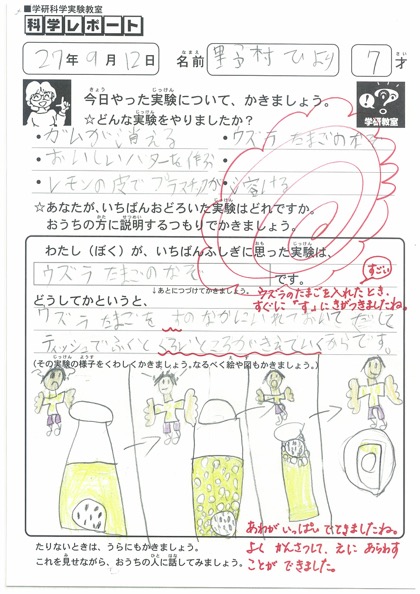 ■学研科学実験教室
科学レポート
27年9月12日 名前 野村ひより 7才
今日やった実験について、かきましょう。
☆どんな実験をやりましたか?
学研教室
・ガムが消える ・ウズラたまごの
・おいしいバターを作る ・
・レモンの皮でプラスチックが溶ける
☆あなたが、いちばんおどろいた実験はどれですか。
おうちの方に説明するつもりでかきましょう。
わたし(ぼく)が、いちばんふしぎに思った実験は、
ウズラたまごのなぞ です。
↓あとにつづけてかきましょう。
すごい
ウズラのたまごを入れたとき、
すぐに"す"にきがつきましたね。
どうしてかというと、
ウズラたまごをすのなかにいれておいてだして
ティッシュでふくとくろいところがきえていくからです。
(その実験の様子をくわしくかきましょう。なるべく絵や図もかきましょう。)
あわがいっぱいでてきましたね。
よくかんさつして、えにあらわす
ことができました。
たりないときは、うらにもかきましょう。
これを見せながら、おうちの人に話してみましょう。